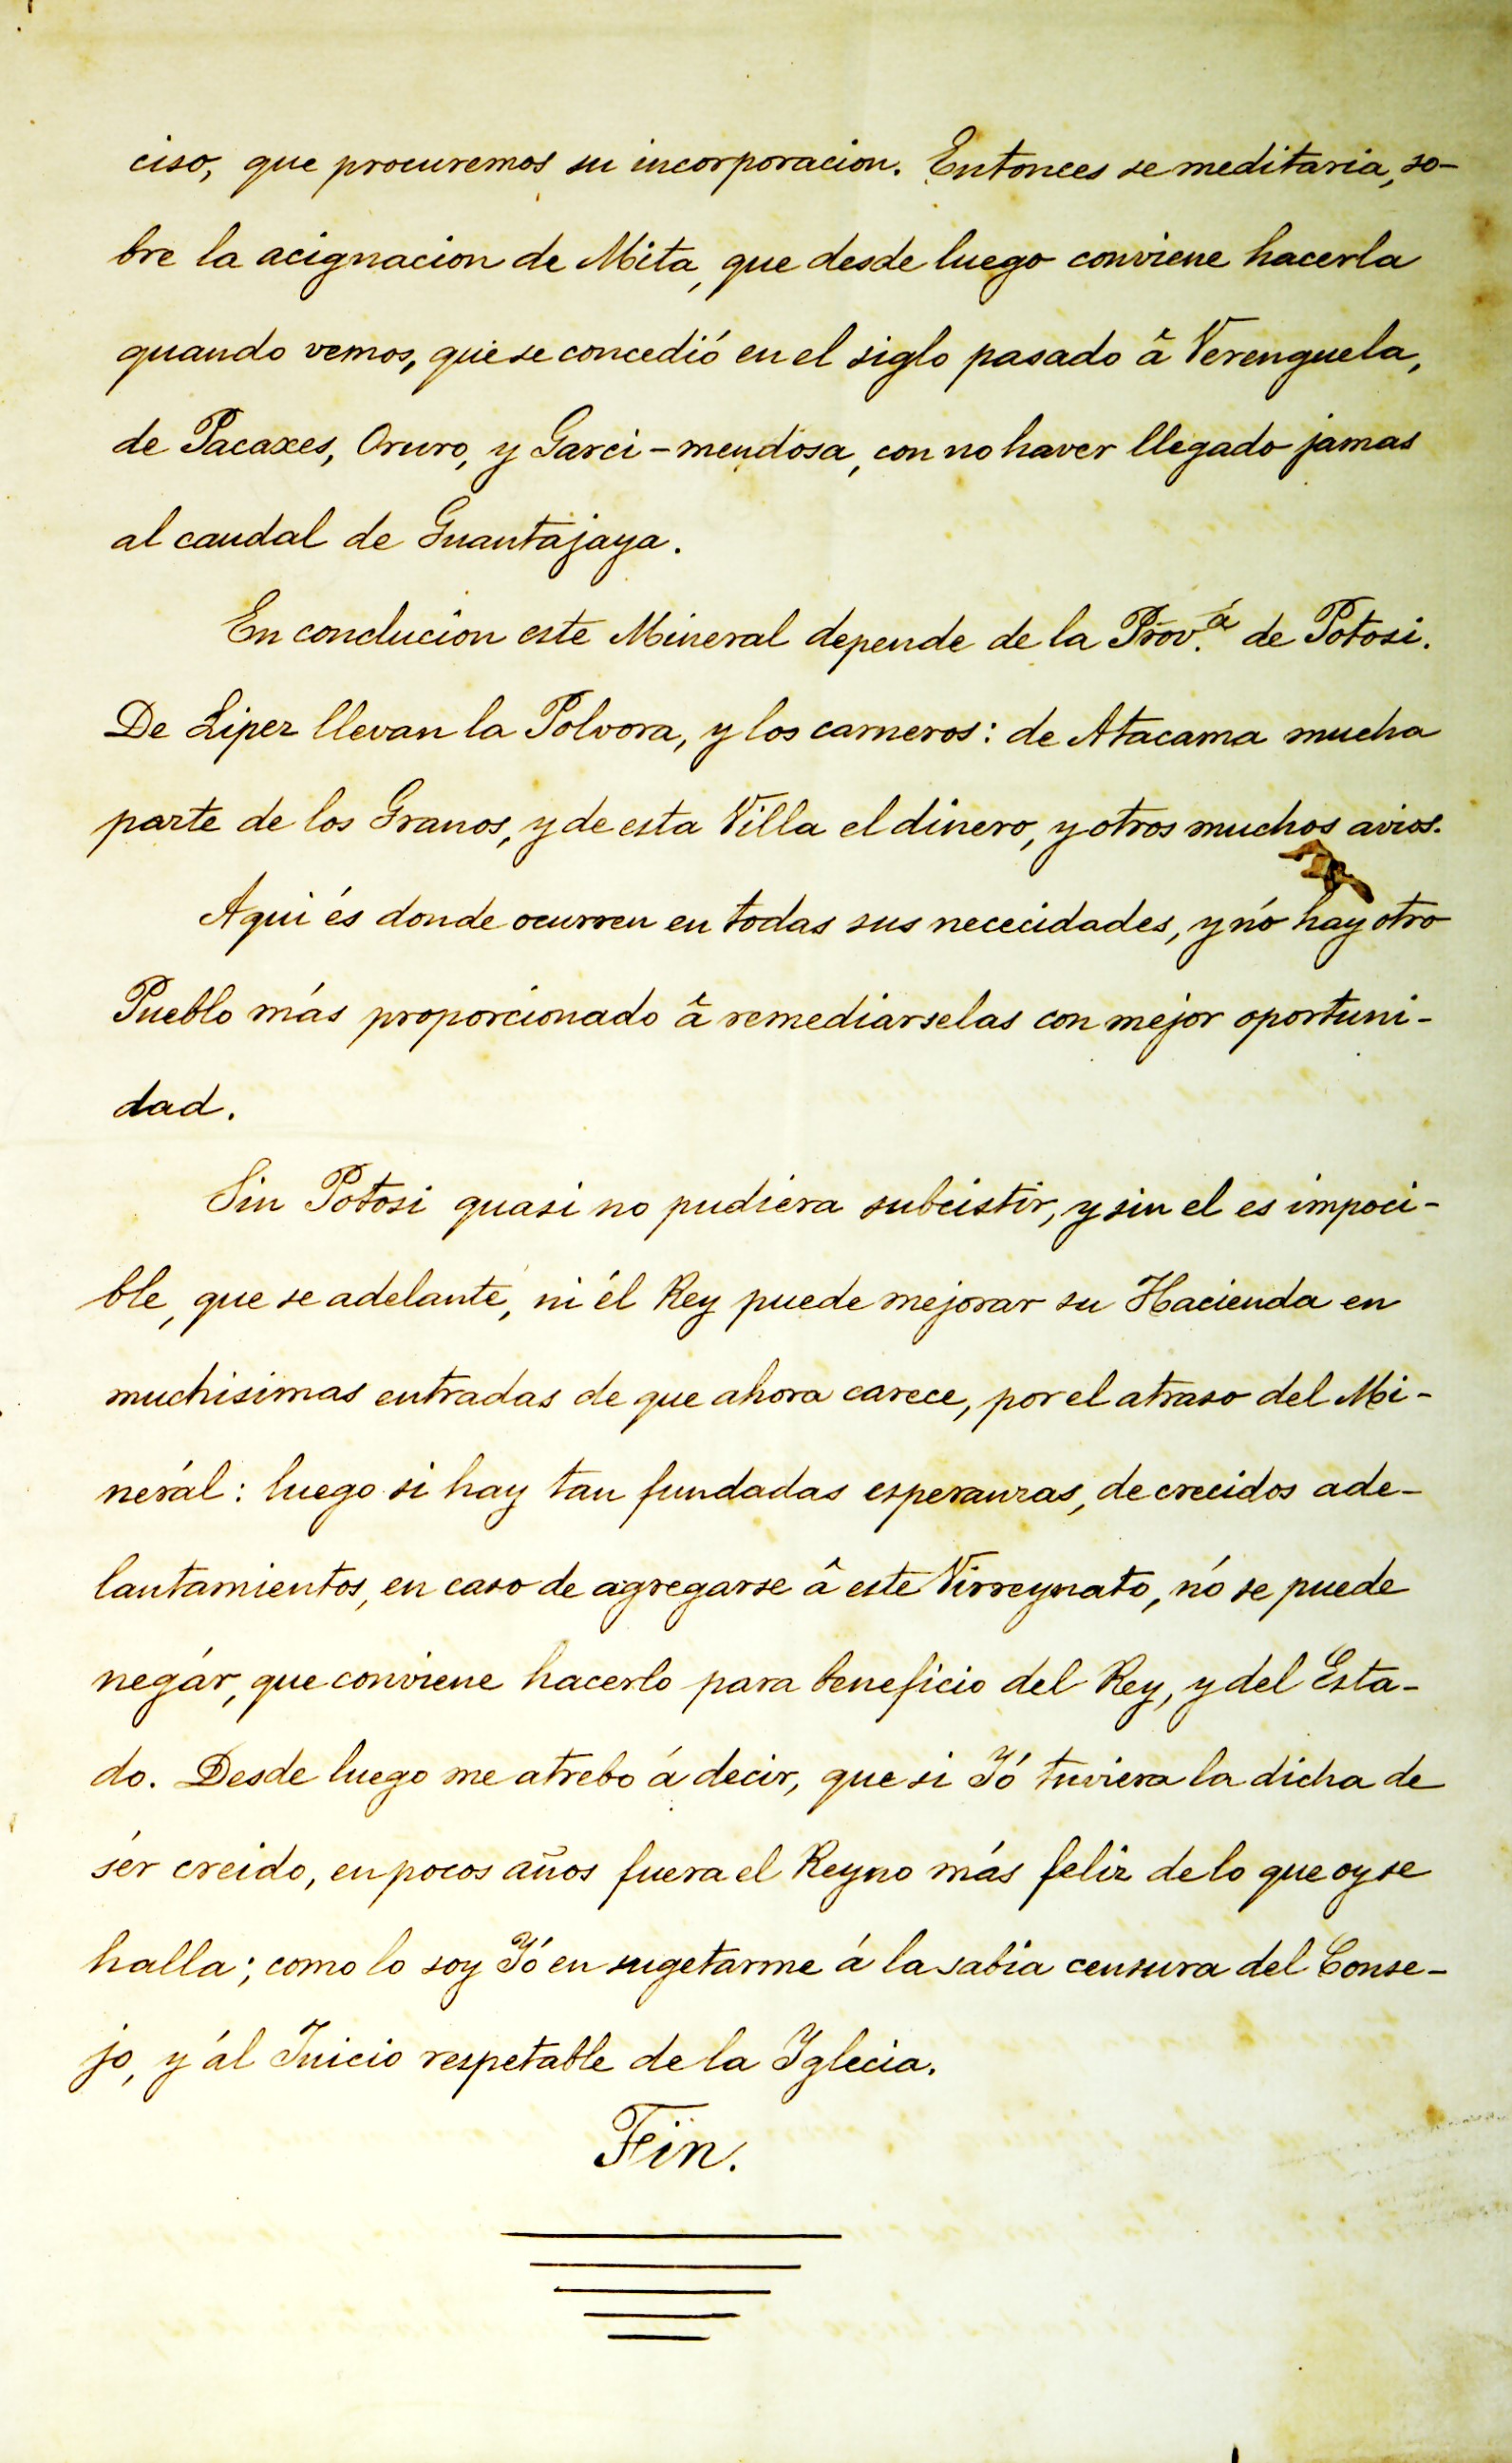 ciso, que procuremos su incorporacion. Entonces se meditaria, so-
bre la acignacion de Mita, que desde luego conviene hacerla
quando vemos, que se concedió en el siglo pasado â Verenguela,
de Pacaxes, Oruro, y Garci-mendosa, con no haver llegado jamas
al caudal de Guantajaya.
En conclucion este Mineral depende de la Prov.ª de Potosi.
De Lipez llevan la Polvora, y los carneros: de Atacama mucha
parte de los Granos, y de esta Villa el dinero, y otros muchos avios.
Aqui és donde ocurren en todas sus nececidades, y nó hay otro
Pueblo más proporcionado â remediarselas con mejor oportuni-
dad.
Sin Potosi quasi no pudiera subcistir, y sin el es impoci-
ble, que se adelante, ni él Rey puede mejorar su Hacienda en
muchisimas entradas de que ahora carece, por el atraso del Mi-
nerál: luego si hay tan fundadas esperanzas, de crecidos ade-
lantamientos, en caso de agregarse â este Virreynato, nó se puede
negár, que conviene hacerlo para beneficio del Rey, y del Esta-
do. Desde luego me atrebo á decir, que si Yó tuviera la dicha de
sér creido, en pocos años fuera el Reyno más feliz de lo que oy se
halla; como lo soy Yó en sugetarme á la sabia censura del Conse-
jo, y ál Juicio respetable de la Yglecia.
Fin.